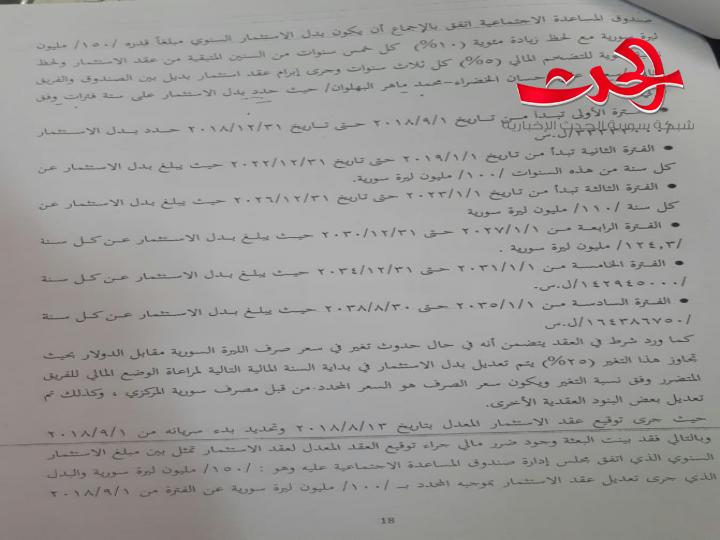 صندوق المساعدة الاجتماعية اتفق بالإجماع أن يكون بدل الاستثمار السنوي مبلغاً قدره /١٥٠/ مليون
ليرة سورية مع لحظ زيادة مئوية (١٠%) كل خمس سنوات من السنين المتبقية من عقد الاستثمار ولحظ
للتضخم المالي (٥%) كل ثلاث سنوات وجرى إبرام عقد استثمار بديل بين الصندوق والفريق
حسان الخضراء-محمد ماهر البهلوان/ حيث حدد بدل الاستثمار على ستة فترات وفق
الحدث
شبكة سورية الحدث الإخبارية
الأولى تبدأ من تاريخ ٢٠١٨/٩/١ حتى تاريخ ٢٠١٨/١٢/٣١ حدد بدل الاستثمار
/ل.س
• الفترة الثانية تبدأ من تاريخ ٢٠١٩/١/١ حتى تاريخ ٢٠٢٢/١٢/٣١ حيث يبلغ بدل الاستثمار عن
كل سنة من هذه السنوات /١٠٠/ مليون ليرة سورية.
• الفترة الثالثة تبدأ من تاريخ ٢٠٢٣/١/١ حتى تاريخ ٢٠٢٦/١٢/٣١ حيث يبلغ بدل الاستثمار عن
كل سنة /١١٠/ مليون ليرة سورية
• الفترة الرابعة من ٢٠٢٧/١/١ حتى ٢٠٣٠/١٢/٣١ حيث يبلغ بدل الاستثمار عن كل سنة
/١٢٤,٣/ مليون ليرة سورية .
• الفترة الخامسة من ٢٠٣١/١/١ حتى ٢٠٣٤/١٢/٣١ حيث يبلغ بدل الاستثمار عن كل سنة
/١٤٢٩٤٥٠٠٠/ل.س.
• الفترة السادسة من ٢٠٣٥/١/١ حتى ٢٠٣٨/٨/٣٠ حيث يبلغ بدل الاستثمار عن كل سنة
/١٦٤٣٨٦٧٥٠/ل.س
كما ورد شرط في العقد يتضمن أنه في حال حدوث تغير في سعر صرف الليرة السورية مقابل الدولار بحيث
تجاوز هذا التغير (٢٥%) يتم تعديل بدل الاستثمار في بداية السنة المالية التالية لمراعاة الوضع المالي للفريق
المتضرر وفق نسبة التغير ويكون سعر الصرف هو السعر المحدد من قبل مصرف سورية المركزي ، وكذلك تم
تعديل بعض البنود العقدية الأخرى.
حيث جرى توقيع عقد الاستثمار المعدل بتاريخ ٢٠١٨/٨/١٣ وتحديد بدء سريانه من ٢٠١٨/٩/١
وبالتالي فقد بينت البعثة وجود ضرر مالي جراء توقيع العقد المعدل لعقد الاستثمار تمثل بين مبلغ الاستثمار
السنوي الذي اتفق مجلس إدارة صندوق المساعدة الاجتماعية عليه وهو : /١٥٠/ مليون ليرة سورية والبدل
الذي جرى تعديل عقد الاستثمار بموجبه المحدد بـ /١٠٠/ مليون ليرة سورية عن الفترة من ٢٠١٨/٩/١
18